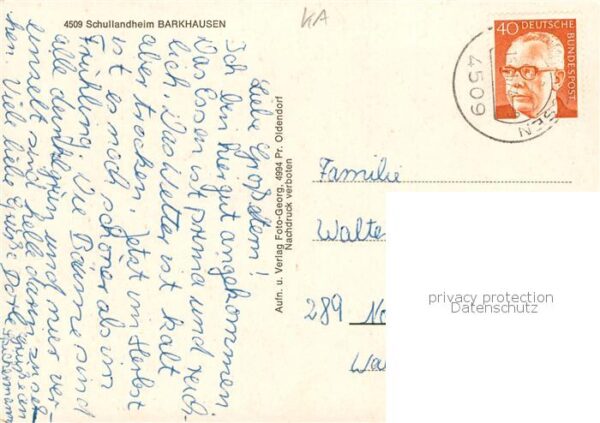 4509 Schullandheim BARKHAUSEN
KA
Liebe Großeltern!
Ich bin hier gut angekommen.
Das Essen ist prima und reich-
lich. Das Wetter ist kalt
aber trocken. Jetzt im Herbst
ist es noch schöner als im
Frühling. Die Bäume sind
alle dunkelgrün und nur ver-
einzelt sind helle darin zu seh-
hen. Viel liebe Grüße
Aufn. u. Verlag Foto-Georg, 4994 Pr. Oldendorf
Nachdruck verboten
40 DEUTSCHE BUNDESPOST
4509
SEN
Familie
Walte
289 No
Wa
privacy protection
Datenschutz